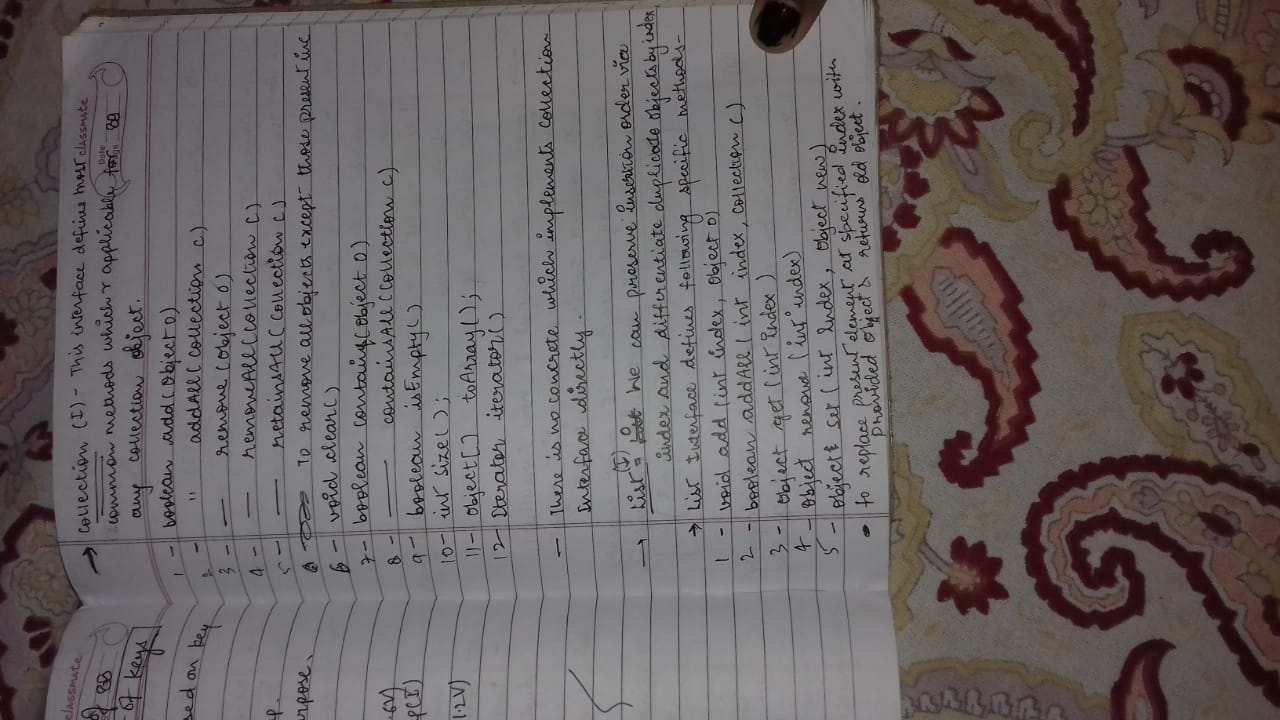 classmate
Date
Page 88
→ Collection (I) - This interface defines most
common methods which r applicable for
any collection object.
1 - boolean add (Object O)
2 - " addAll (Collection C)
3 - — remove (Object O)
4 - — removeAll (Collection C)
5 - — retainsAll (Collection C)
To remove all objects except those present in c
6 - void clear()
7 - boolean contains (Object O)
8 - — containsAll (Collection C)
9 - boolean isEmpty ()
10 - int size ();
11 - Object [] toArray ();
12 - Iterator iterator()
- There is no concrete which implements Collection
Interface directly.
→ List (I) = We can preserve insertion order via
index and differentiate duplicate objects by index
→ List Interface defines following specific methods-
1 - void add (int index, Object O)
2 - boolean addAll (int index, Collection C)
3 - Object get (int Index)
4 - Object remove (int index)
5 - Object set (int Index, Object new)
• to replace present element at specified index with
provided Object & returns old object.
classmate
of 88
of keys
sed on key
p.
rpose.
1.2V)